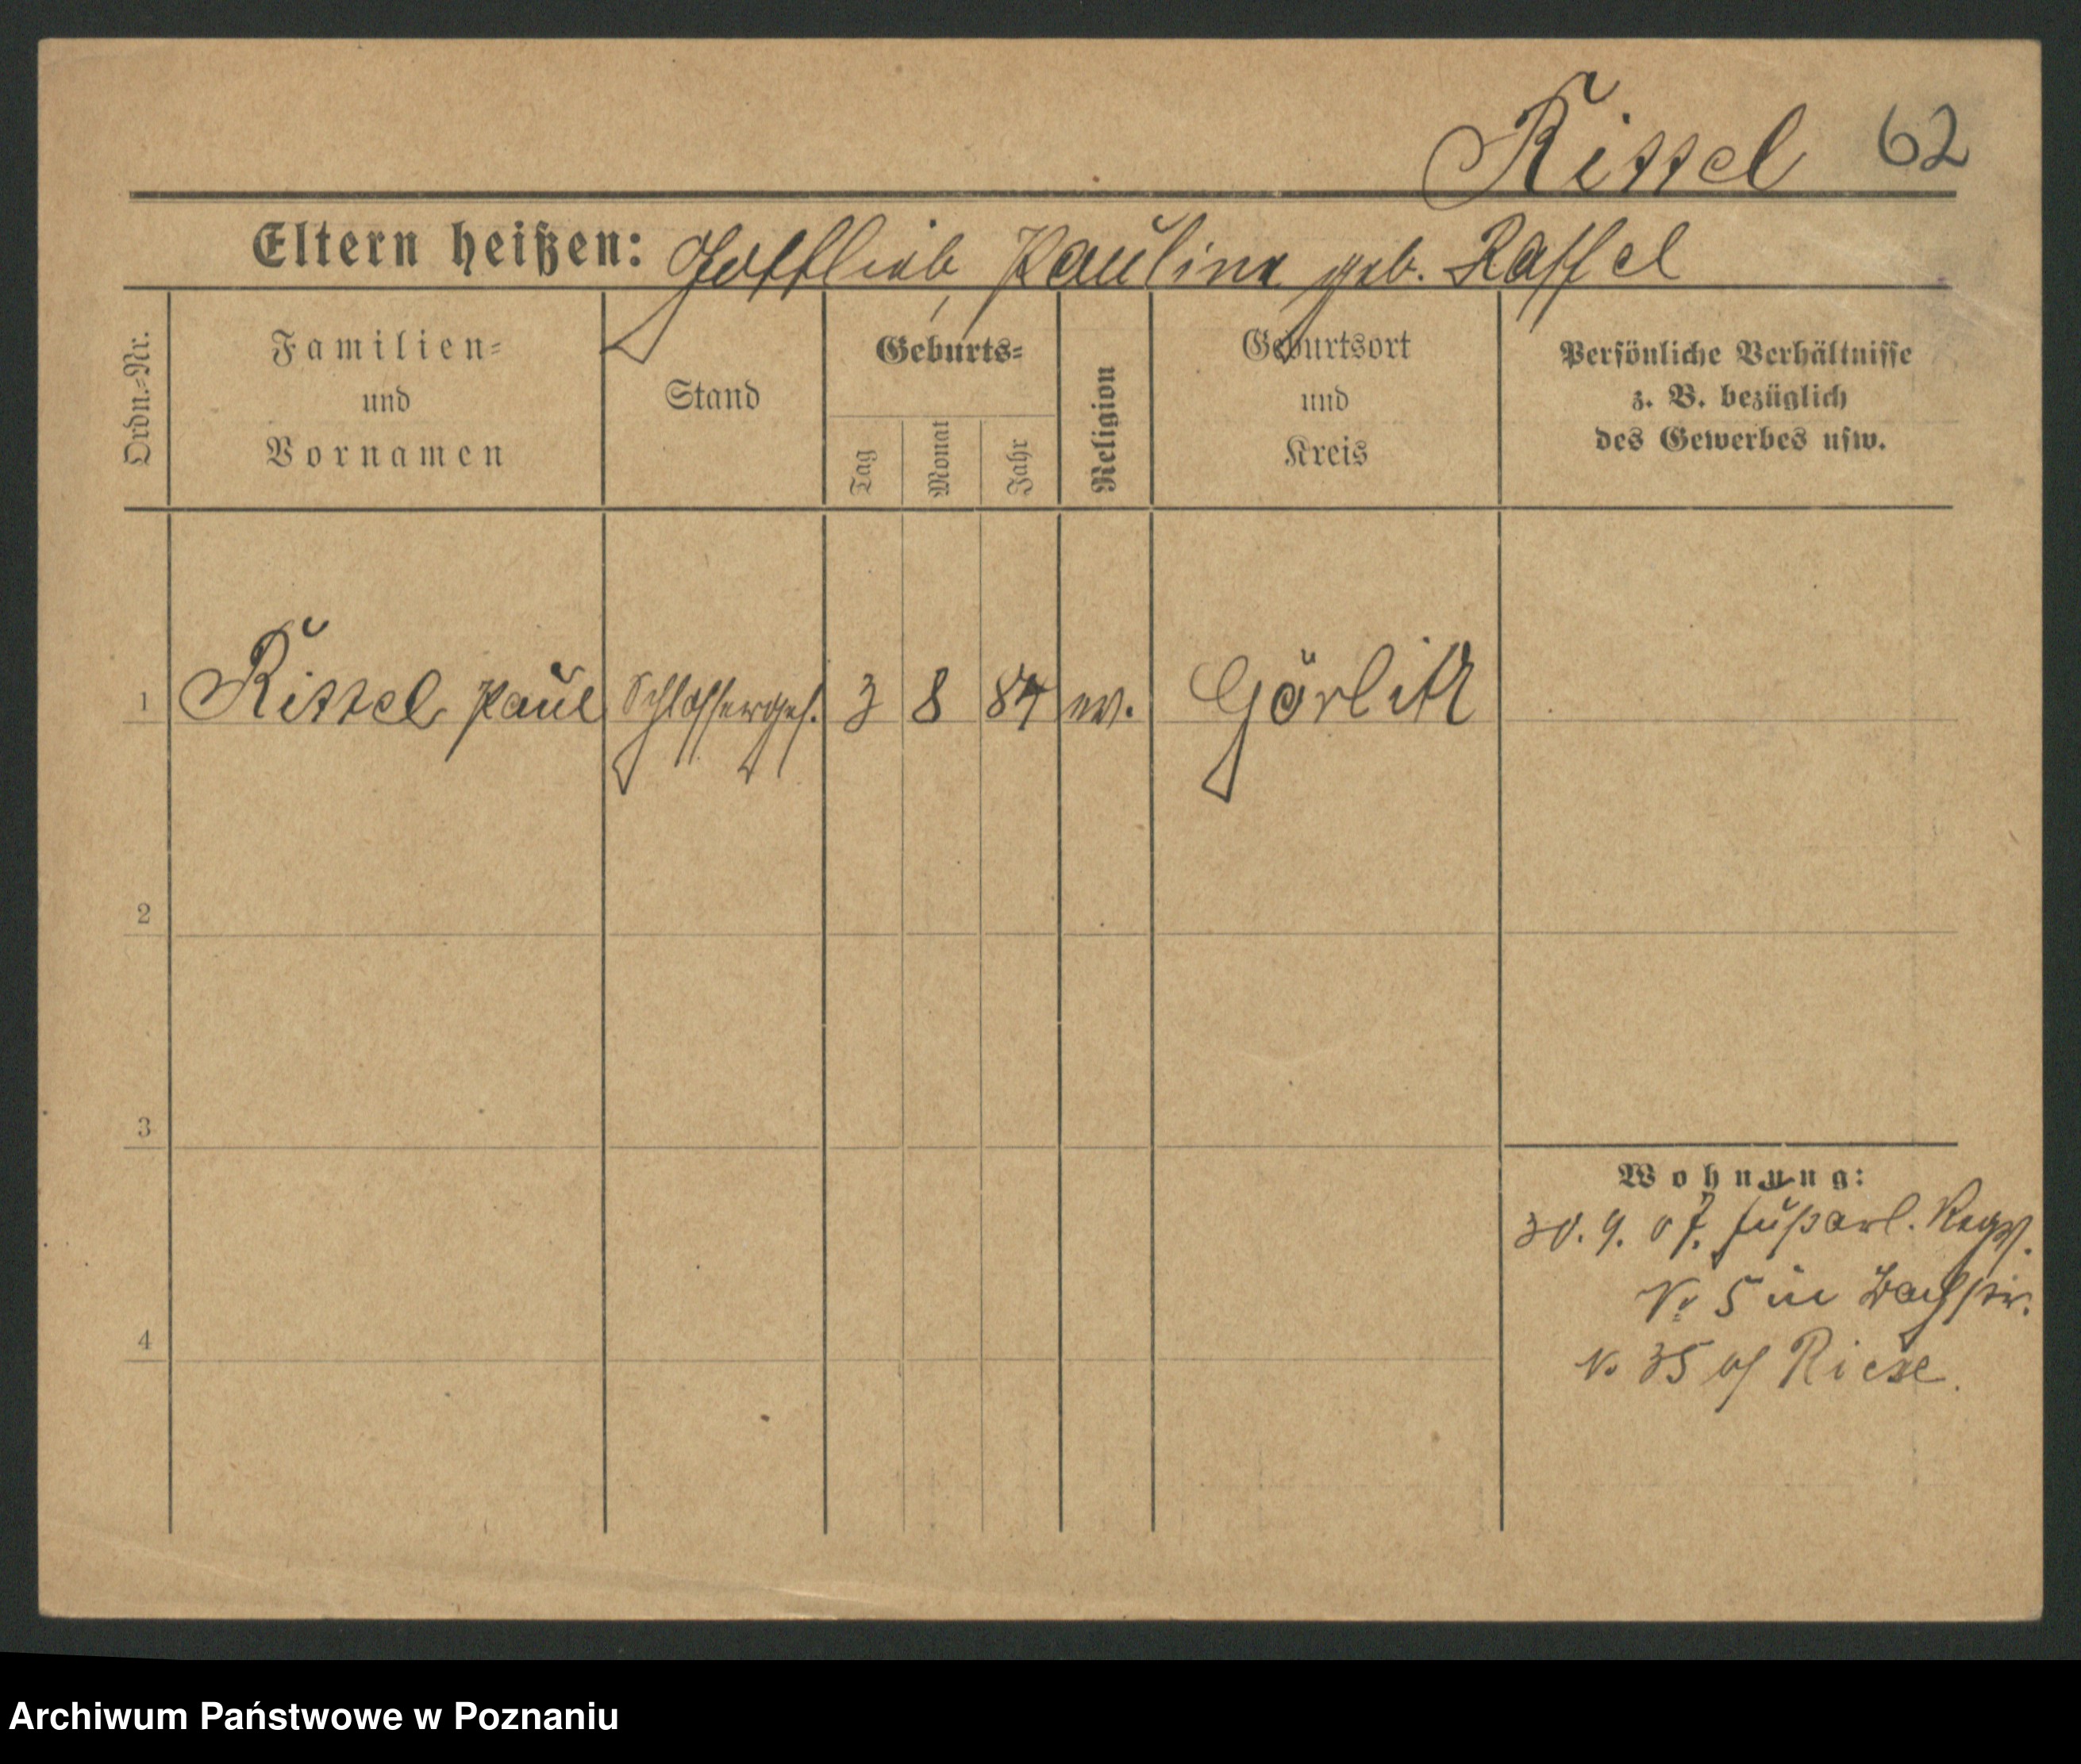 Kittel 62
Eltern heißen: Gottlieb, Pauline geb. Raffel
Ordn.-Nr.
Familien-
und
Vornamen
Stand
Geburts-
Tag
Monat
Jahr
Religion
Geburtsort
und
Kreis
Persönliche Verhältnisse
z. B. bezüglich
des Gewerbes usw.
1 Kittel Paul Schlosserges. 3 8 84 ev. Görlitz
2
3
4
Wohnung:
30. 9. 07. Fußarl. Regt.
No 5 in
No 35 b/ Riese.
Archiwum Państwowe w Poznaniu